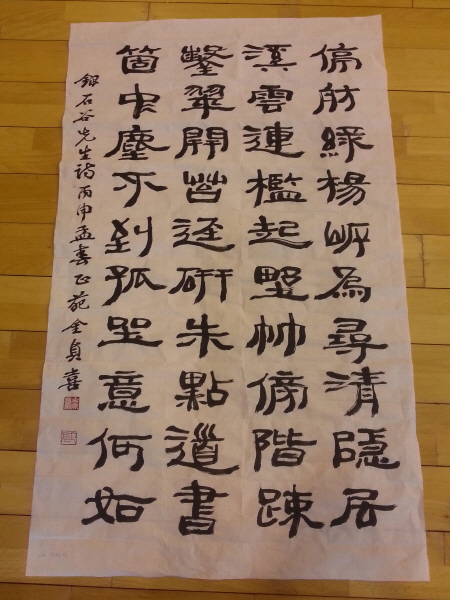 停舫綠楊岸為尋清隱居
溪雲連檻起墅竹傍階踈
鑿翠開苔逕研朱點道書
箇中塵不到孤坐意何如
錄石谷先生詩丙申孟春正苑金貞喜